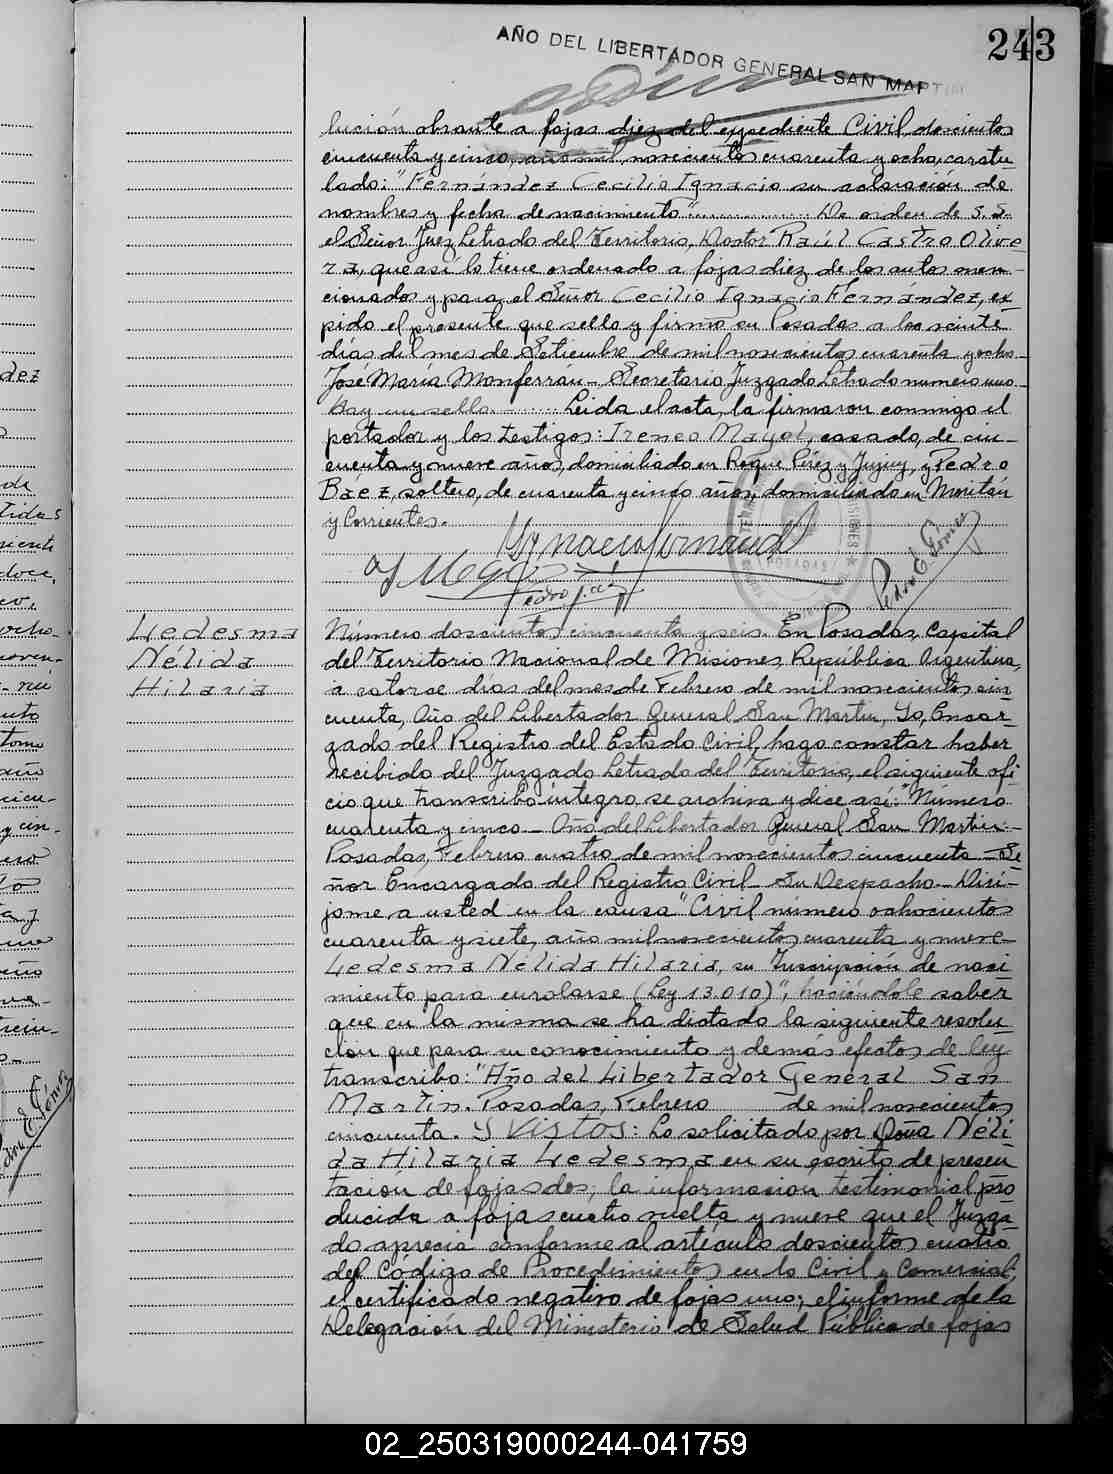 AÑO DEL LIBERTADOR GENERAL SAN MARTIN
243
lución obrante a fojas diez del expediente Civil, doscientos
cincuenta y cinco, año mil novecientos cuarenta y ocho, caratu
lado: "Fernández Cecilio Ignacio su aclaración de
nombres y fecha de nacimiento" De orden de S.S.
el Señor Juez Letrado del Territorio, Doctor Raúl Castro Olive
ra, que así lo tiene ordenado a fojas diez de los autos men-
cionados y para el Señor Cecilio Ignacio Fernández, ex
pido el presente que sello y firmo en Posadas a los veinte
días del mes de Setiembre de mil novecientos cuarenta y ocho-
José María Monferrán - Secretario Juzgado Letrado numero uno-
Hay un sello. - Leida el acta, la firmaron conmigo el
portador y los testigos: Ireneo Mayol, casado, de cin-
cuenta y nueve años, domiciliado en Roque Pérez y Jujuy, y Pedro
Báez, soltero, de cuarenta y cinco años, domiciliado en Moritán
y Corrientes.
POSADAS
Pedro E. Gómez
Ledesma
Nélida
Hilaria
Número doscientos cincuenta y seis. En Posadas, Capital
del Territorio Nacional de Misiones, República Argentina,
a catorce días del mes de Febrero de mil novecientos cin
cuenta, Año del Libertador General San Martin, Yo, Encar-
gado del Registro del Estado Civil, hago constar haber
recibido del Juzgado Letrado del Territorio, el siguiente ofi
cio que transcribo íntegro, se archiva y dice así: "Número
cuarenta y cinco - Año del Libertador General San Martin.-
Posadas, Febrero cuatro de mil novecientos cincuenta - Se
ñor Encargado del Registro Civil - Su Despacho - Diri-
jome a usted en la causa "Civil número ochocientos
cuarenta y siete, año mil novecientos cuarenta y nueve -
Ledesma Nélida Hilaria, su Inscripción de naci
miento para enrolarse (Ley 13.010)", haciéndole saber
que en la misma se ha dictado la siguiente resolu
ción que para su conocimiento y demás efectos de ley
transcribo: "Año del Libertador General San
Martin. Posadas, Febrero de mil novecientos
cincuenta. Y VISTOS: Lo solicitado por Doña Néli
da Hilaria Ledesma en su escrito de presen
tación de fojas dos; la información testimonial pro
ducida a fojas cuatro vuelta y nueve que el Juzga-
do aprecia conforme al artículo doscientos cuatro
del Código de Procedimientos en lo Civil y Comercial;
el certificado negativo de fojas uno; el informe de la
Delegación del Ministerio de Salud Pública de fojas
02_250319000244-041759